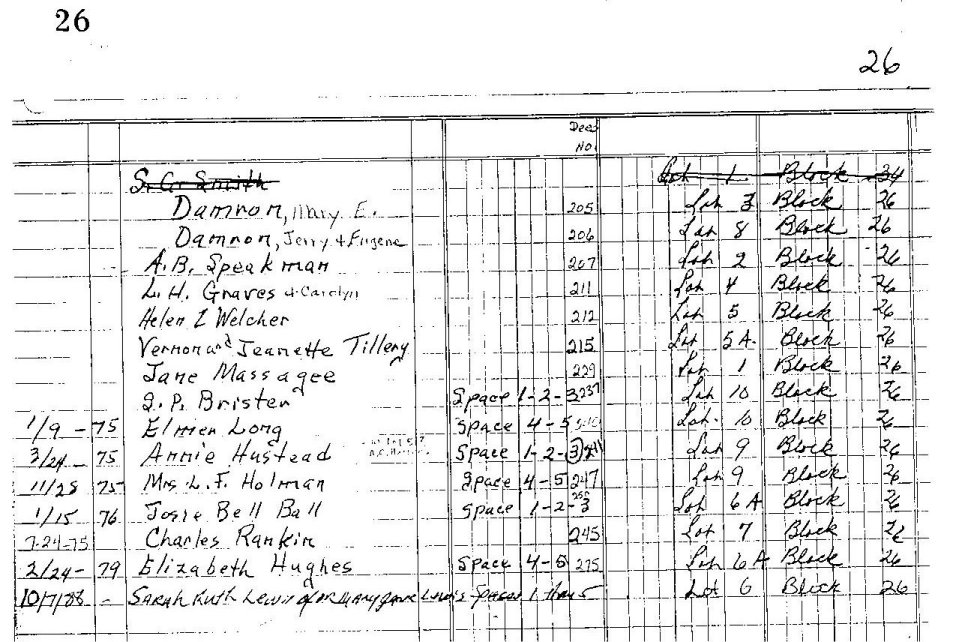 26
26
Deed
No.
S. G. Smith Lot 1 Block 34
Damron, Mary E. 205 Lot 3 Block 26
Damron, Jerry & Eugene 206 Lot 8 Block 26
A.B. Speakman 207 Lot 2 Block 26
L.H. Graves & Carolyn 211 Lot 4 Block 26
Helen I Welcher 212 Lot 5 Block 26
Vernon and Jeanette Tillery 215 Lot 5A Block 26
Jane Massagee 229 Lot 1 Block 26
Brister Space 1-2-3 237 Lot 10 Block 26
1/9-75 Elmer Long Space 4-5 Lot 10 Block 26
3/24-75 Annie Hustead Space 1-2-3 Lot 9 Block 26
11/25 75 Mrs L.F. Holman Space 4-5 247 Lot 9 Block 26
1/15 76 Josie Bell Ball Space 1-2-3 Lot 6A Block 26
7-24-75 Charles Rankin 245 Lot 7 Block 26
2/24-79 Elizabeth Hughes Space 4-5 275 Lot 6A Block 26
10/7/88 - Sarah Ruth Lewis or Mary Jane Lewis Spaces 1 thru 5 Lot 6 Block 26